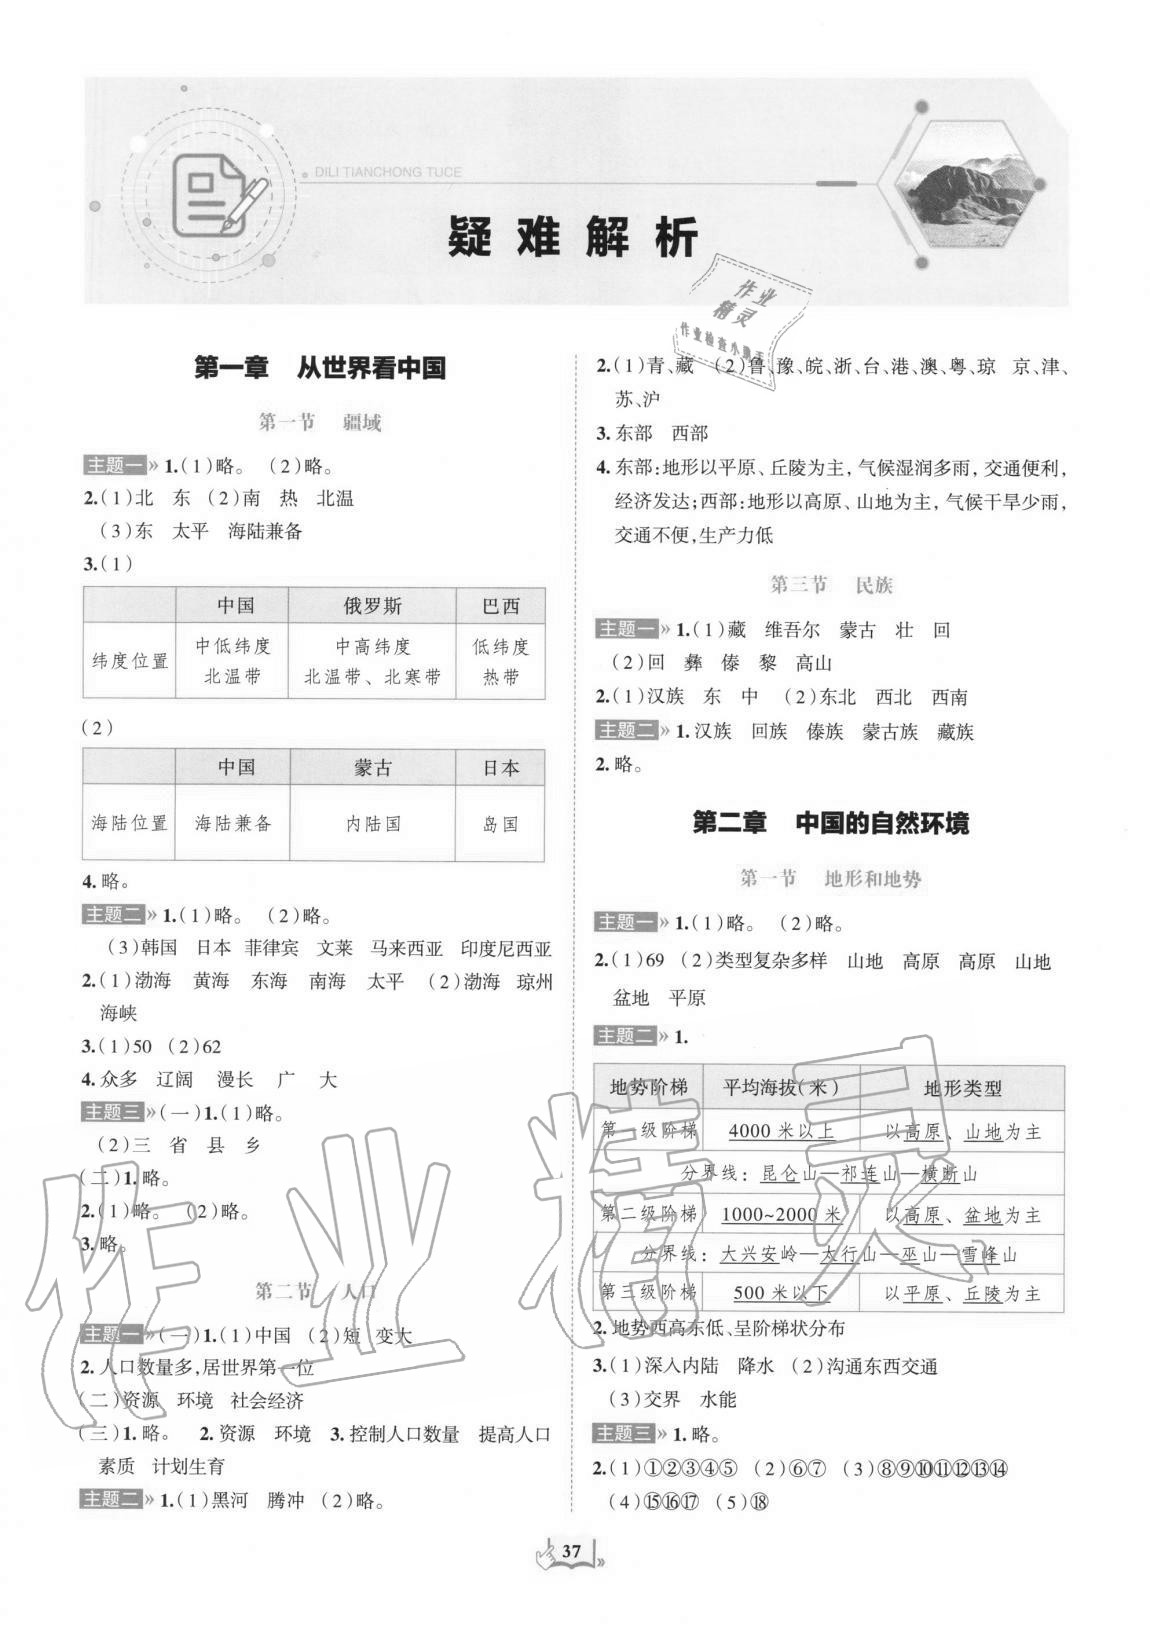 DILI TIANCHONG TUCE
疑难解析
作业
精灵
第一章 从世界看中国
第一节 疆域
主题一 1.(1)略。 (2)略。
2.(1)北 东 (2)南 热 北温
(3)东 太平 海陆兼备
3.(1)
中国 俄罗斯 巴西
纬度位置 中低纬度 北温带 中高纬度 北温带、北寒带 低纬度 热带
(2)
中国 蒙古 日本
海陆位置 海陆兼备 内陆国 岛国
4.略。
主题二 1.(1)略。 (2)略。
(3)韩国 日本 菲律宾 文莱 马来西亚 印度尼西亚
2.(1)渤海 黄海 东海 南海 太平 (2)渤海 琼州
海峡
3.(1)50 (2)62
4.众多 辽阔 漫长 广 大
主题三 (一)1.(1)略。
(2)三 省 县 乡
(二)1.略。
2.(1)略。 (2)略。
3.略。
第二节 人口
主题一 (一)1.(1)中国 (2)短 变大
2.人口数量多,居世界第一位
(二)资源 环境 社会经济
(三)1.略。 2.资源 环境 3.控制人口数量 提高人口
素质 计划生育
主题二 1.(1)黑河 腾冲 (2)略。
2.(1)青、藏 (2)鲁、豫、皖、浙、台、港、澳、粤、琼 京、津、
苏、沪
3.东部 西部
4.东部:地形以平原、丘陵为主,气候湿润多雨,交通便利,
经济发达;西部:地形以高原、山地为主,气候干旱少雨,
交通不便,生产力低
第三节 民族
主题一 1.(1)藏 维吾尔 蒙古 壮 回
(2)回 彝 傣 黎 高山
2.(1)汉族 东 中 (2)东北 西北 西南
主题二 1.汉族 回族 傣族 蒙古族 藏族
2.略。
第二章 中国的自然环境
第一节 地形和地势
主题一 1.(1)略。 (2)略。
2.(1)69 (2)类型复杂多样 山地 高原 高原 山地
盆地 平原
主题二 1.
地势阶梯 平均海拔(米) 地形类型
第一级阶梯 4000 米以上 以高原、山地为主
分界线:昆仑山—祁连山—横断山
第二级阶梯 1000~2000 米 以高原、盆地为主
分界线:大兴安岭—太行山—巫山—雪峰山
第三级阶梯 500 米以下 以平原、丘陵为主
2.地势西高东低、呈阶梯状分布
3.(1)深入内陆 降水 (2)沟通东西交通
(3)交界 水能
主题三 1.略。
2.(1)①②③④⑤ (2)⑥⑦ (3)⑧⑨⑩⑪⑫⑬⑭
(4)⑮⑯⑰ (5)⑱
37
作业精灵